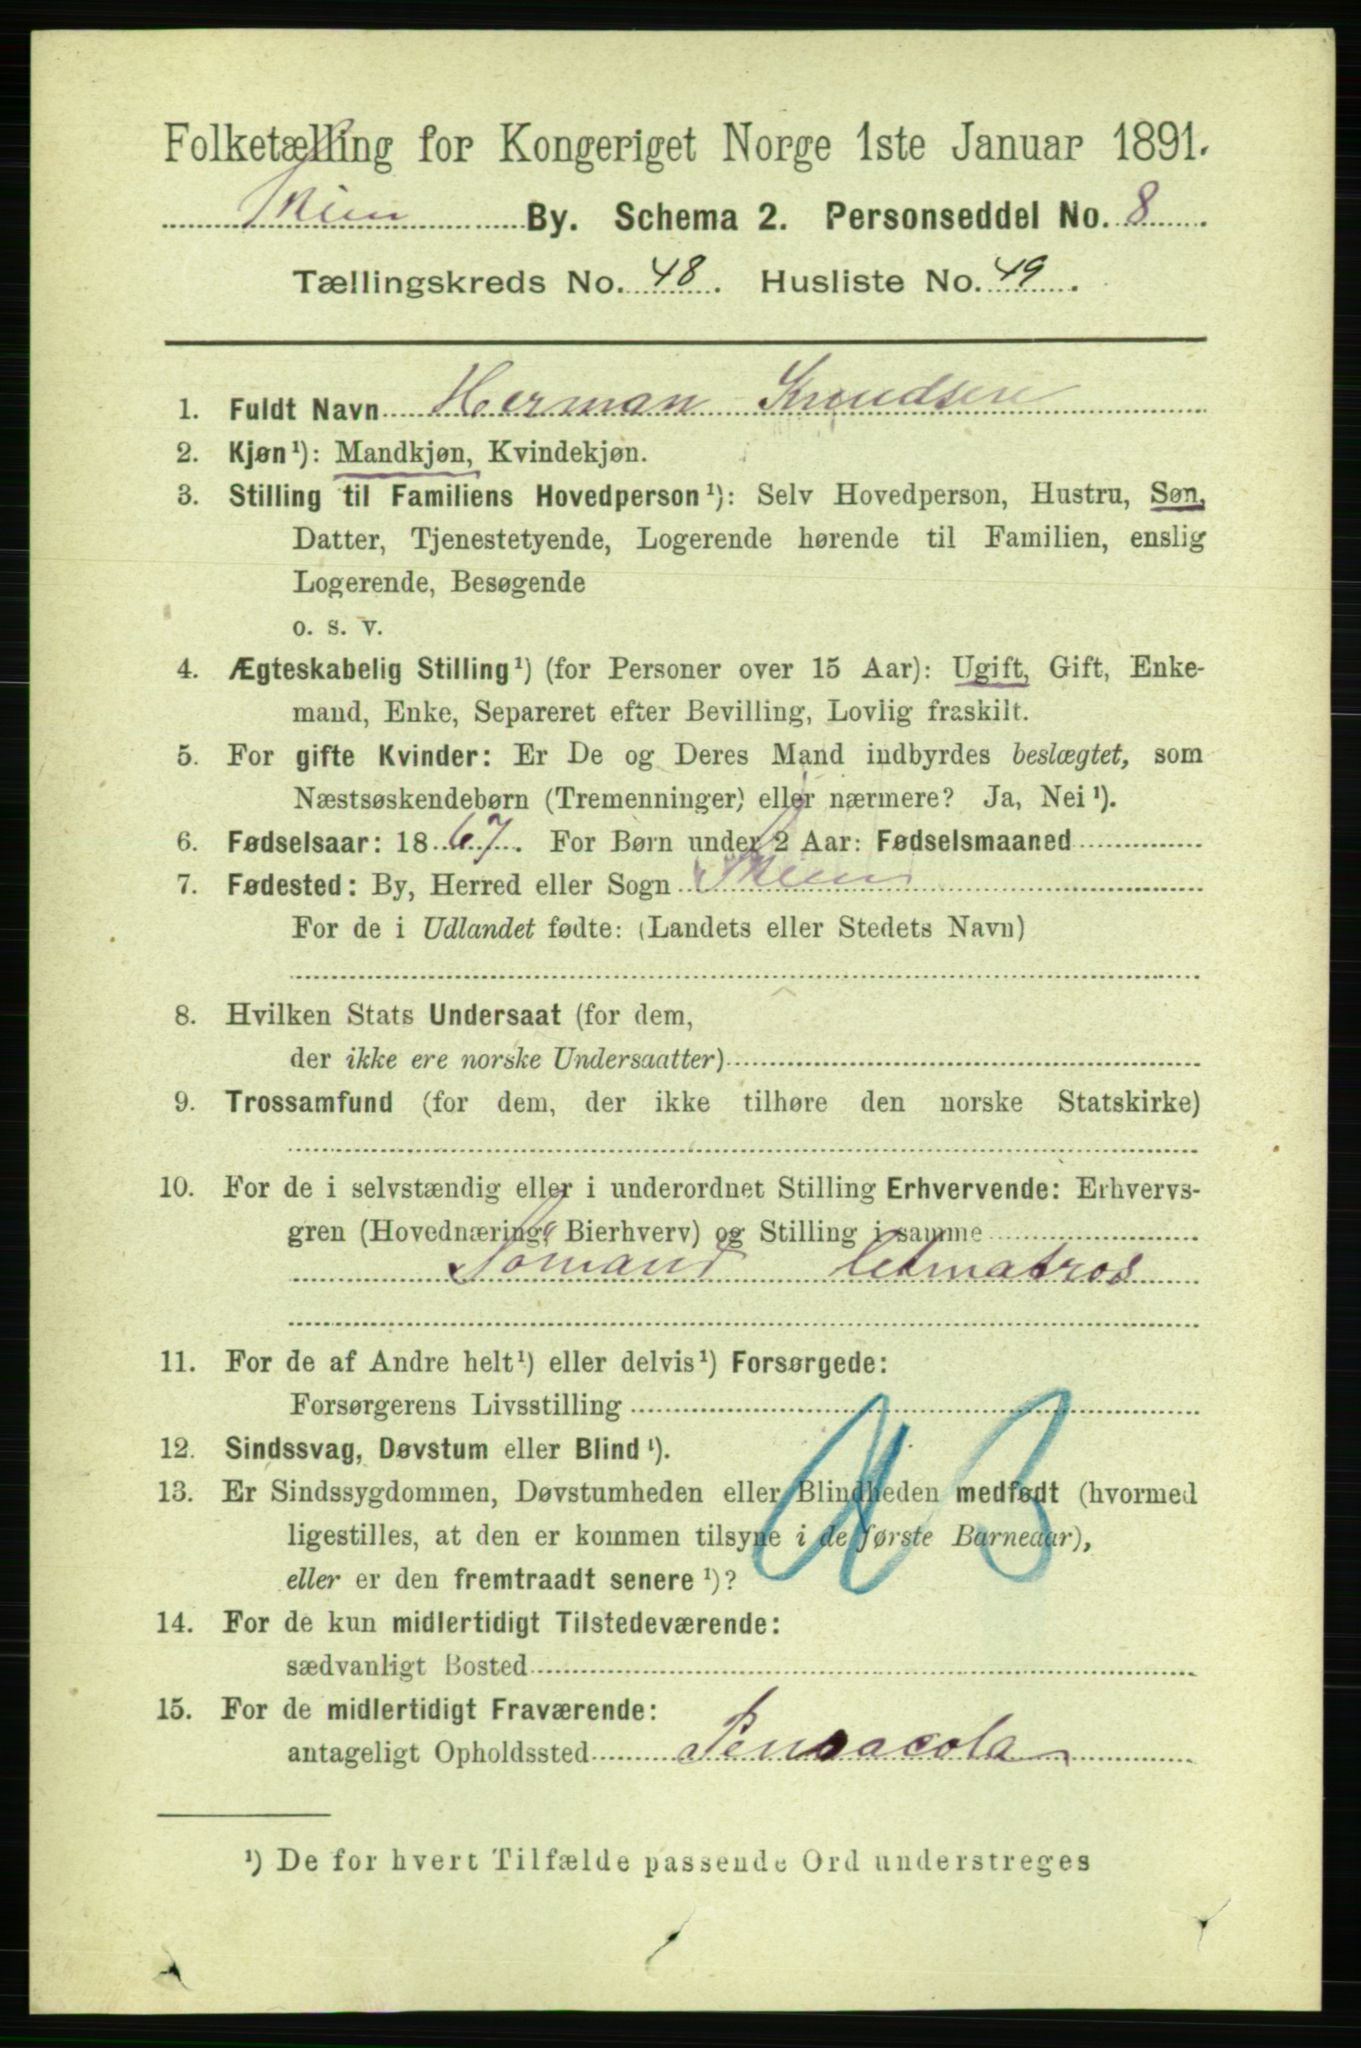 Folketælling for Kongeriget Norge 1ste Januar 1891.
Skien By. Schema 2. Personseddel No. 8
Tællingskreds No. 48. Husliste No. 49.
1. Fuldt Navn Herman Knudsen
2. Kjøn¹): Mandkjøn, Kvindekjøn.
3. Stilling til Familiens Hovedperson¹): Selv Hovedperson, Hustru, Søn,
Datter, Tjenestetyende, Logerende hørende til Familien, enslig
Logerende, Besøgende
o. s. v.
4. Ægteskabelig Stilling¹) (for Personer over 15 Aar): Ugift, Gift, Enke-
mand, Enke, Separeret efter Bevilling, Lovlig fraskilt.
5. For gifte Kvinder: Er De og Deres Mand indbyrdes beslægtet, som
Næstsøskendebørn (Tremenninger) eller nærmere? Ja, Nei¹).
6. Fødselsaar: 1867. For Børn under 2 Aar: Fødselsmaaned
7. Fødested: By, Herred eller Sogn Skien
For de i Udlandet fødte: (Landets eller Stedets Navn)
8. Hvilken Stats Undersaat (for dem,
der ikke ere norske Undersaatter)
9. Trossamfund (for dem, der ikke tilhøre den norske Statskirke)
10. For de i selvstændig eller i underordnet Stilling Erhvervende: Erhvervs-
gren (Hovednæring, Bierhverv) og Stilling i samme
Sømand Letmatros
11. For de af Andre helt¹) eller delvis¹) Forsørgede:
Forsørgerens Livsstilling
12. Sindssvag, Døvstum eller Blind¹).
13. Er Sindssygdommen, Døvstumheden eller Blindheden medfødt (hvormed
ligestilles, at den er kommen tilsyne i de første Barneaar),
eller er den fremtraadt senere¹)?
14. For de kun midlertidigt Tilstedeværende:
sædvanligt Bosted
15. For de midlertidigt Fraværende:
antageligt Opholdssted Pensacola
¹) De for hvert Tilfælde passende Ord understreges